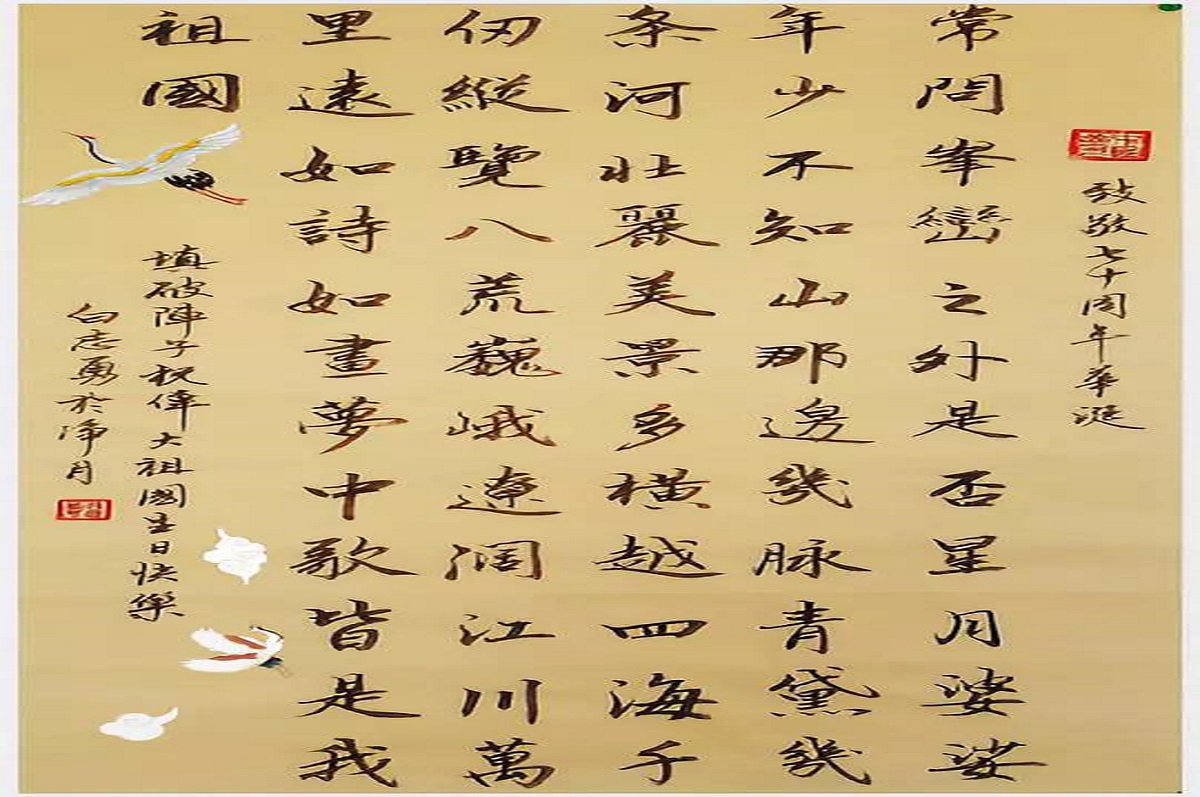 致敬七十周年華誕
常問峯巒之外是否星月娑娑
年少不知山那邊幾脉青黛幾
条河壮麗美景多橫越四海千
仞縱覽八荒巍峨遼濶江川萬
里遠如詩如畫夢中歌皆是我
祖國
填破陣子祝偉大祖國生日快樂
白志勇於净月